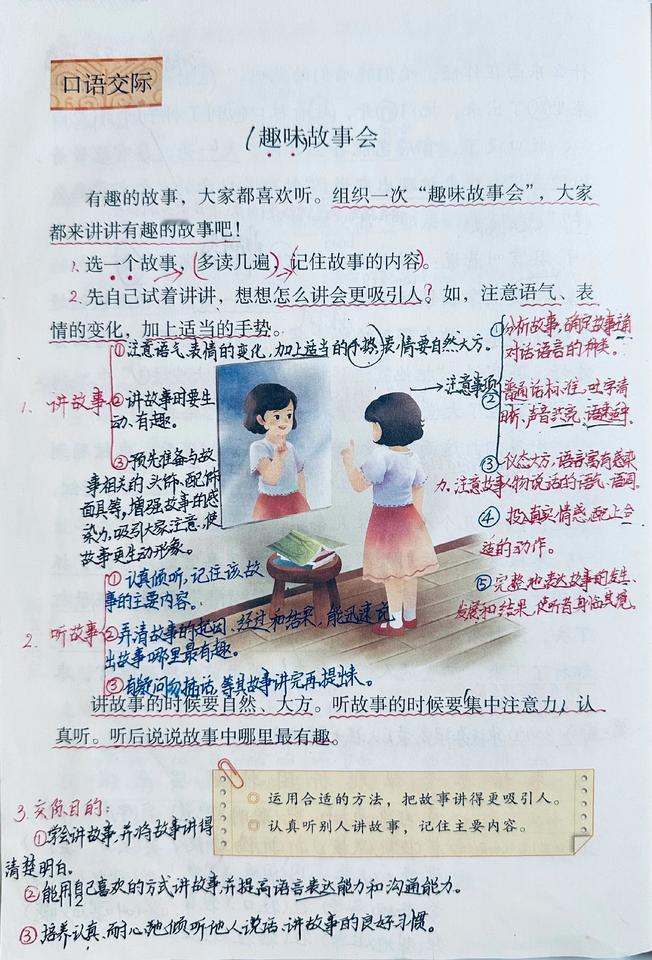 口语交际
趣味故事会
有趣的故事，大家都喜欢听。组织一次“趣味故事会”，大家
都来讲讲有趣的故事吧！
1.选一个故事，多读几遍，记住故事的内容。
2.先自己试着讲讲，想想怎么讲会更吸引人？如，注意语气、表
情的变化，加上适当的手势。
1.讲故事
①注意语气、表情的变化，加上适当的手势，表情要自然大方。
②讲故事时要生
动、有趣。
③预先准备与故
事相关的头饰、配饰
面具等，增强故事的感
染力，吸引大家注意，使
故事更生动形象。
→注意事项
①分析故事，确定故事
对话语言的种类。
②普通话标准，吐字清
晰，声音洪亮，语速适中。
③仪态大方，语言富有感染
力，注意故事人物说话的语气、语调。
④投入真实情感，配上合
适的动作。
⑤完整地表达故事的发生、
发展和结果，使听者身临其境。
2.听故事
①认真倾听，记住该故
事的主要内容。
②弄清故事的起因、经过和结果，能迅速说
出故事哪里最有趣。
③有疑问勿插话，等其故事讲完再提出来。
讲故事的时候要自然、大方。听故事的时候要集中注意力，认
真听。听后说说故事中哪里最有趣。
运用合适的方法，把故事讲得更吸引人。
认真听别人讲故事，记住主要内容。
3.交际目的：
①学会讲故事，并将故事讲得
清楚明白。
②能用自己喜欢的方式讲故事，并提高语言表达能力和沟通能力。
112
③培养认真、耐心地倾听他人说话、讲故事的良好习惯。